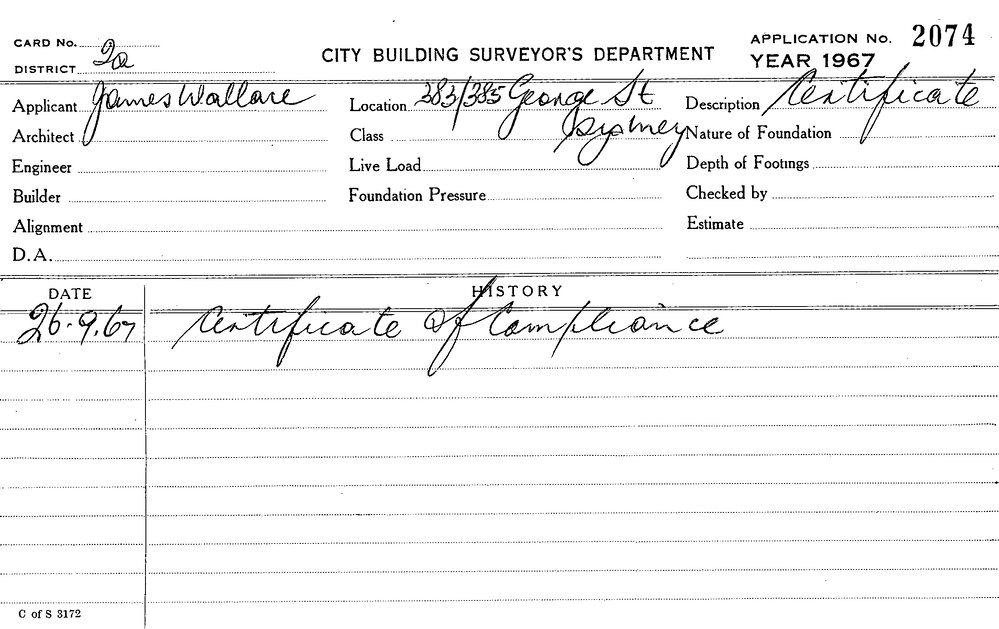 CARD No.
DISTRICT 2a
CITY BUILDING SURVEYOR'S DEPARTMENT
APPLICATION No. 2074
YEAR 1967
Applicant James Wallace Location 383/385 George St Description Certificate
Architect Class Sydney Nature of Foundation
Engineer Live Load Depth of Footings
Builder Foundation Pressure Checked by
Alignment Estimate
D.A.
DATE HISTORY
26.9.67 Certificate Of Compliance
C of S 3172